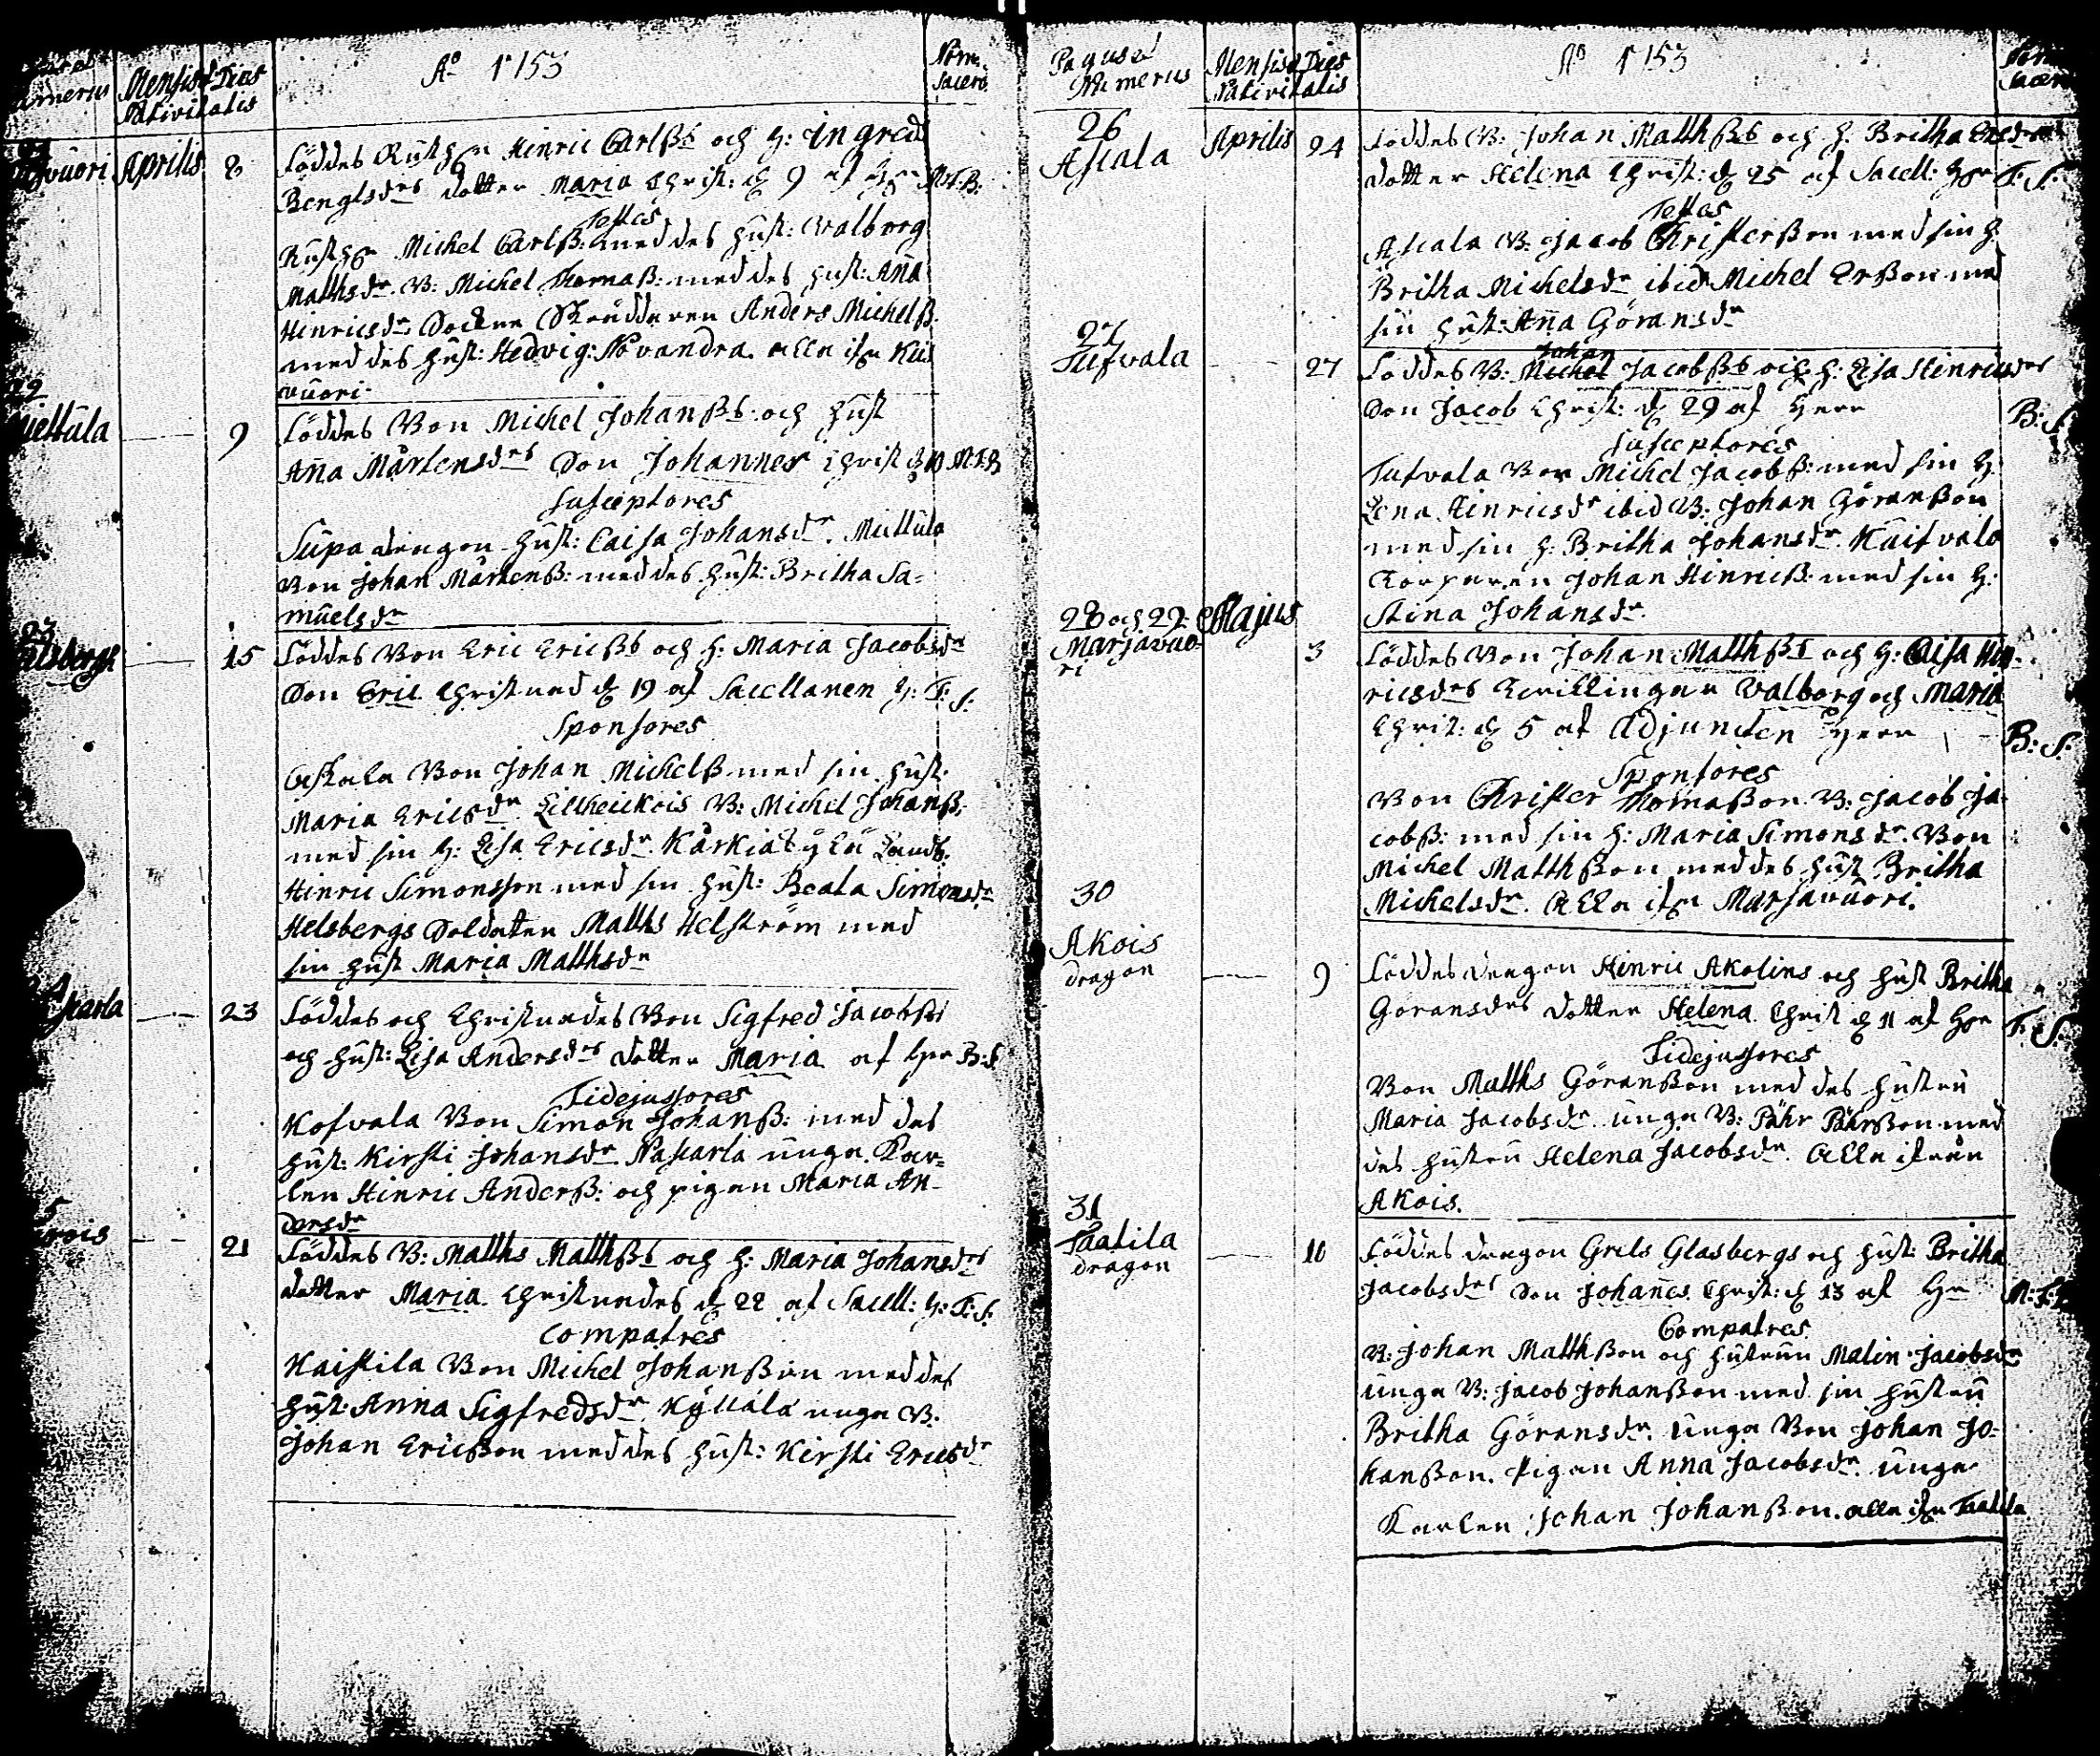 Numerus Mensis & Dies Nativitatis
Ao 1753
Nom. Sacerd.
vuori Aprilis 8 Föddes Rusth. Hinric Carlß:s och H: Ingred
Bengtsdrs dotter Maria Christ: d. 9 af M.F.B.
Testes
Rusth. Michel Carlß: med des hust: Walborg
Mathsdr. B: Michel Thomaß: med des hust: Aña
Hinricsdr. Sockne Skräddaren Anders Michelß.
med des hust: Hedvig: Novandra. alle ifrn Kus
vuori.
22
Miettula 9 Föddes Bon Michel Johanß:s och hust
Aña Mårtensdrs Son Johannes Christ d. 10 M.F.B
Susceptores
Supa dragon hust: Caisa Johansdr. Miettula
Bon Johan Mårtenß: med des hust: Britha Sa=
muelsdr
23
Helsbergs 15 Föddes Bon Eric Ericß:s och H: Maria Jacobsdr
Son Eric Christnad d. 19 af Sacellanen H: F: S:
Sponsores
Askala Bon Johan Michelß med sin hust.
Maria Ericsdr. Liltheickois B: Michel Johanß:
med sin H: Lisa Ericsdr. Karkiakylä Landb:
Hinric Simonsson med sin hust: Beata Simonsdr
Helsbergs Soldaten Matths Helström med
sin hust Maria Matthsdr
23 Föddes och Christnades Bon Sigfred Jacobß:s
och hust: Lisa Andersdrs dotter Maria af Hr B:S.
Fidejussores
Kofvala Bon Simon Johanß: med des
hust: Kirsti Johansdr Pascarla unga Kar=
len Hinric Anderß: och pigan Maria An-
dersdr
rois 21 Föddes B: Matths Matthß:s och H: Maria Johansdrs
dotter Maria. Christnades d. 22 af Sacell: H: F: S:
Compatres
Kaistila Bon Michel Johanßon med des
hust: Anna Sigfredsdr. Kyttälä unga B.
Johan Ericßon med des hust: Kirsti Ericsdr
Pagus & Numerus Mensis & Dies Nativitatis
Ao 1753
26
Ascala Aprilis 24 Föddes B: Johan Matthß:s och H: Britha Ersdrs
dotter Helena Christ: d. 25 af Sacell: Hr F: S:
Testes
Ascala B: Jacob Christerßon med sin H.
Britha Michelsdr ibid Michel Erßon med
sin hust: Aña Göransdr
27
Tufvala 27 Föddes B: Michel Johan Jacobß:s och H: Lisa Hinricsdrs
Son Jacob Christ: d. 29 af Herr B: S.
Susceptores
Tufvala Bon Michel Jacobß: med sin H:
Lena Hinricsdr ibid B: Johan Göranßon
med sin H: Britha Johansdr.
Johan Hinricß: med sin H:
Stina Johansdr.
28 och 29. Majus
Marjavuo-
ri 3 Föddes Bon Johan Matthß:s och H: Caisa Hin-
ricsdrs Twillingar Valborg och Maria
Christ: d. 5 af Adjuncten Herr B: S:
Sponsores
Bon Christer Thomaßon. B: Jacob Ja-
cobß: med sin H: Maria Simonsdr. Bon
Michel Matthßon med des hust Britha
Michelsdr. Alla ifrn Marjavuori.
30
Akois
dragon 9 Föddes dragon Hinric Akolins och hust Britha
Göransdrs dotter Helena Christ d. 11 af Hr F: S.
Fidejussores
Bon Matths Göranßon med des hustru
Maria Jacobsdr. unga B: Pähr Pährßon med
des hustru Helena Jacobsdr. Alla ifrån
Akois.
31
Taatila
dragon 10 Föddes dragon Grels Glasbergs och hust: Britha
Jacobsdrs Son Johañes Christ: d. 13 af Hr M: F: B
Compatres
B: Johan Matthßon och hustrun Malin Jacobsdr
unga B: Jacob Johanßon med sin hustru
Britha Göransdr. Unga Bon Johan Jo=
hanßon. Pigan Anna Jacobsdr. unga
Karlen Johan Johanßon. alla ifrn Taatila